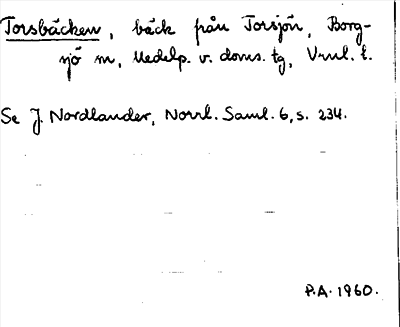 Torsbäcken, bäck från Torsjön, Borg-
sjö sn, Medelp. v. doms. tg, Vnrl. l.
Se J. Nordlander, Norrl. Saml. 6, s. 234.
P.A. 1960.